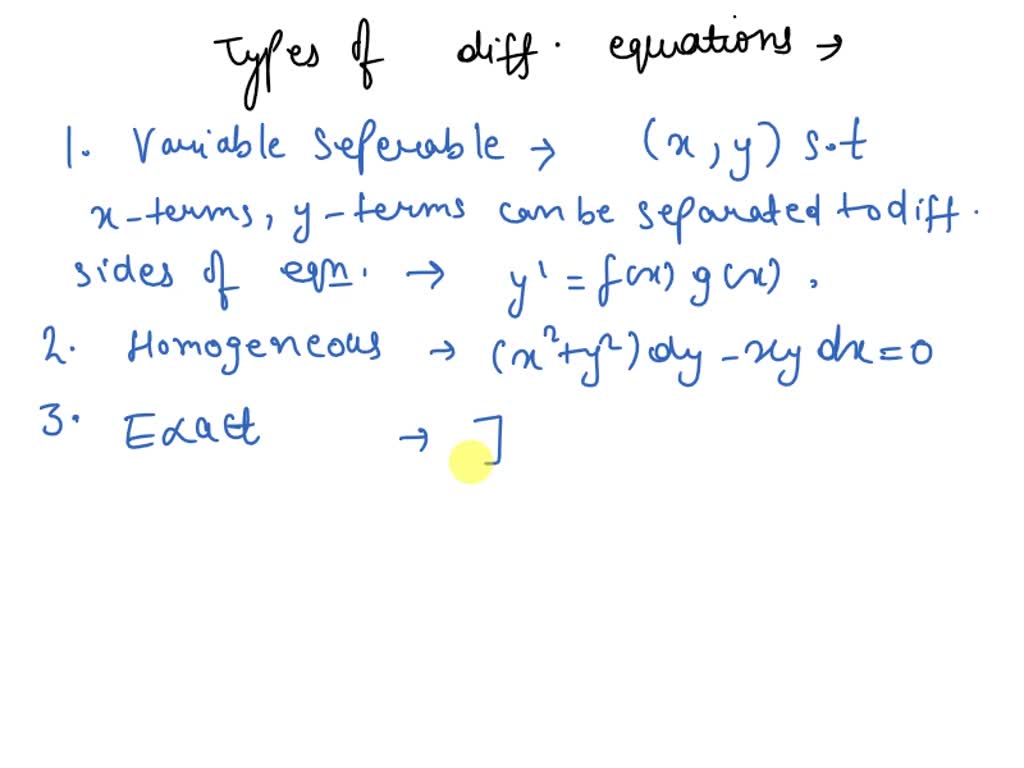 Types of diff. equations →
1. Variable Seperable → (x, y) s.t
x-terms, y-terms can be separated to diff.
sides of eqn. → y' = f(x) g(x),
2. Homogeneous → (x²+y²)dy - xy dx = 0
3. Exact → ]